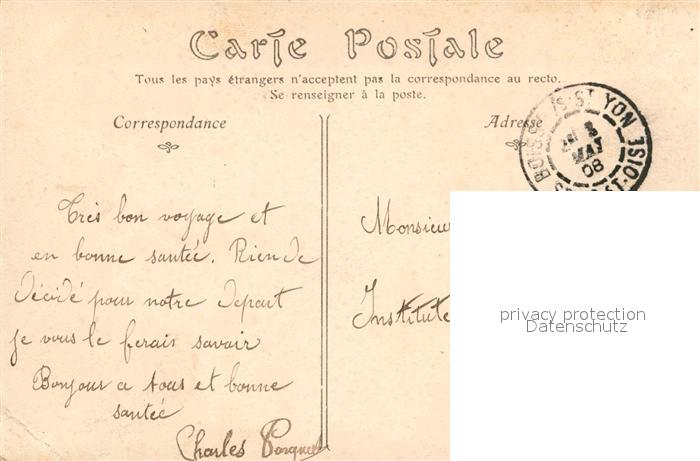 Carte Postale
Tous les pays étrangers n'acceptent pas la correspondance au recto.
Se renseigner à la poste.
Correspondance
Adresse
BOISSY-S-ST YON
MAI
08
ST-OISE
Très bon voyage et
en bonne santée. Rien de
décidé pour notre depart
je vous le ferais savoir
Bonjour a tous et bonne
santée
Charles
Monsieur
Institute
privacy protection
Datenschutz